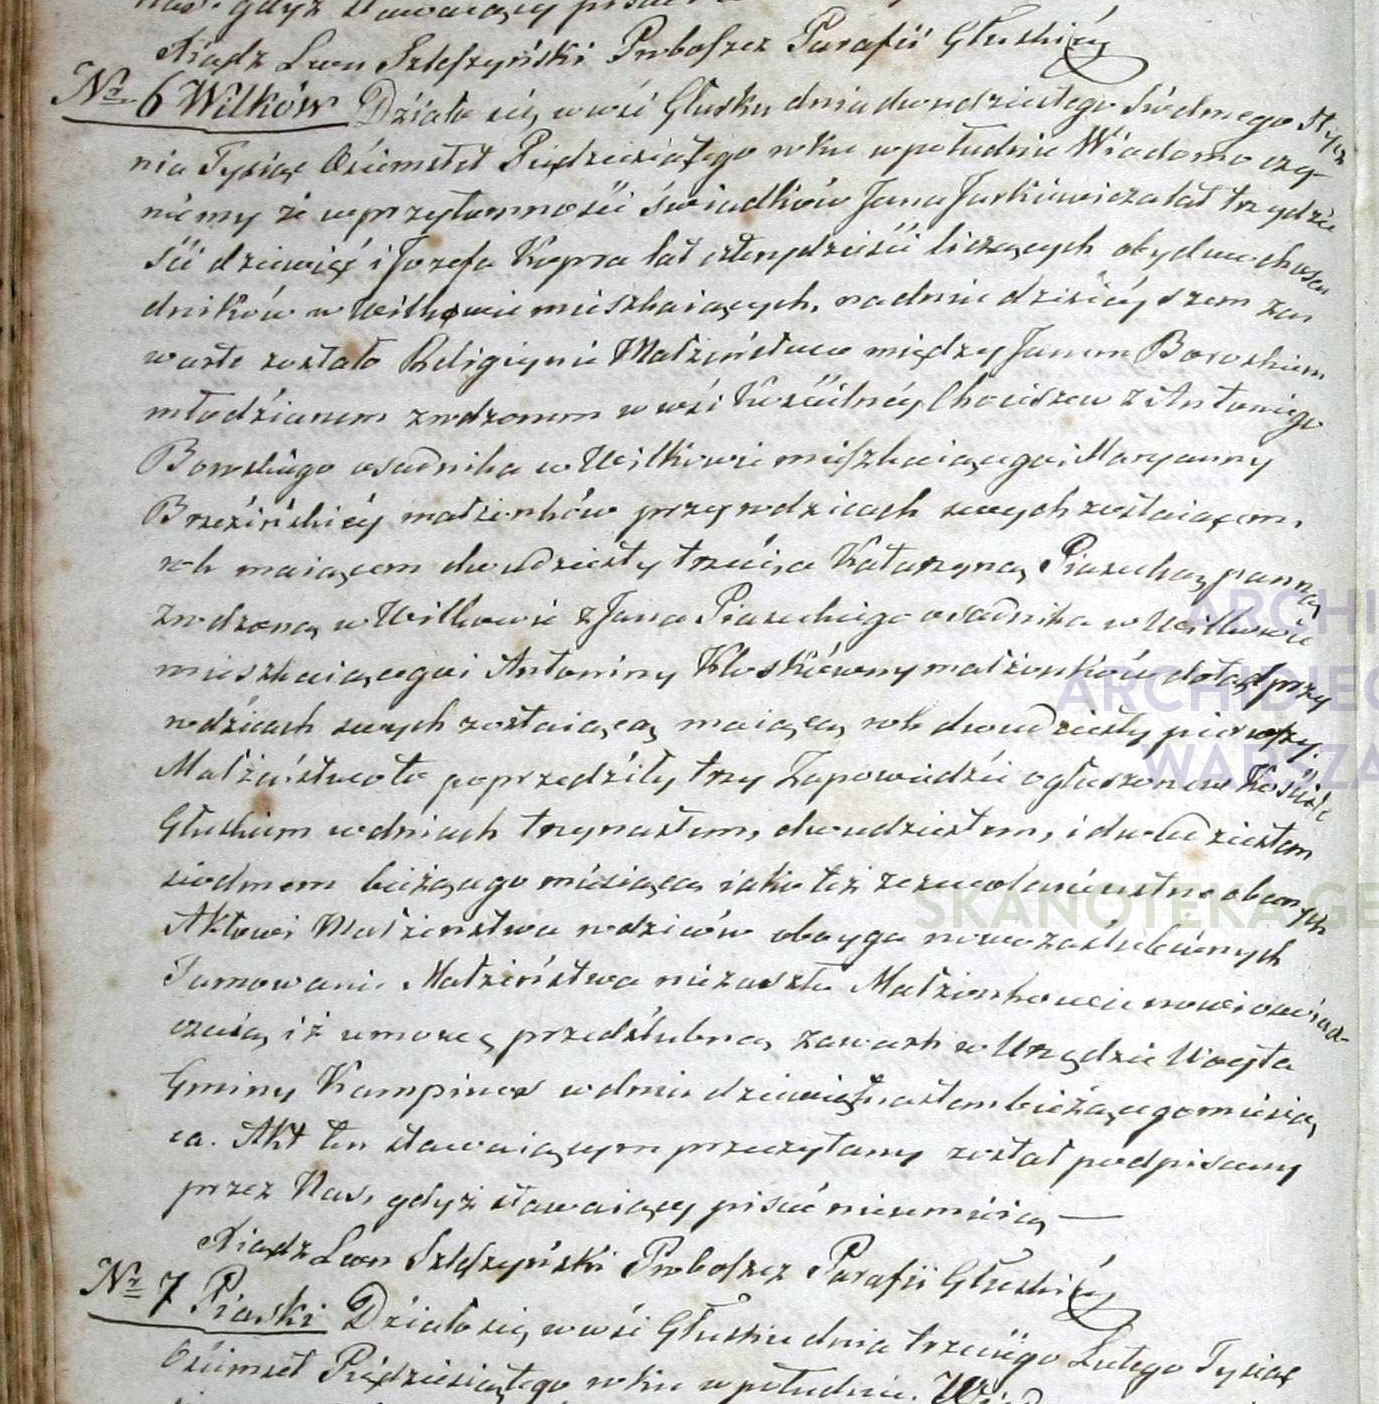 Nas. gdyż stawaiący pisać
Xiądz Leon Szlefzyński Probofzcz Parafii Głuskiéy
Nr. 6 Wilków Działo się w wsi Głusku dnia dwudziestego siódmego Stycz
nia Tysiąc Ośiemset Pięćdziesiątego roku w południe Wiadomo czy-
niemy że w przytomności świadków Jana Jurkiewicza lat trzydzie
ści dziewięć i Jozefa Kopra lat czterydzieści liczących obydwuch osa
dników w Wilkowie mieszkaiących, na dniu dzisieyszem za
warte zostało Religiyne Małżeństwo między Janem Boroskiem
młodzianem zrodzonem w wsi Kościelnéy Chociszew z Antoniego
Borowskiego osadnika w Wilkowie miefzkaiącego i Maryanny
Brzezińskiéy małżonków przy rodzicach swych zostaiącem,
rok maiącem dwudziesty trzeci, a Katarzyną Piasecką panną
zrodzoną w Wilkowie z Jana Piaseckiego osadnika w Wilkowie
mieszkaiącego i Antoniny Kłoskiéwny małżonków dotąd przy
rodzicach swych zostaiącą maiącą rok dwudziesty pierwfzy.
Małżeństwo to poprzedziły trzy Zapowiedzie ogłoszone w Kościele
Głuskiem w dniach trzynastem, dwudziestem, i dwudziestem
siodmem bieżącego miesiąca iako też zezwolenie ustne obecnych
Aktowi Małżeństwa rodziców oboyga nowozaślubionych
Tamowanie Małżeństwa niezaszło Małżonkowie nowi oswiad-
czaią iż umowę przedślubną zawarli w Urzędzie Woyta
Gminy Kampinos w dniu dziewiętnastem bieżącego miesią
ca. Akt ten stawaiącym przeczytany został podpisany
przez Nas, gdyż stawaiący pisać nieumieią —
Xiądz Leon Szlefzyński Probofzcz Parafii Głuskiéy
Nr. 7 Piaski Działo się w wsi Głusku dnia trzeciego Lutego Tysiąc
Ośiemset Pięćdziesiątego roku w południe.
ARCHI
ARCHIDIEC
WARSZA
SKANOTEKA.GE